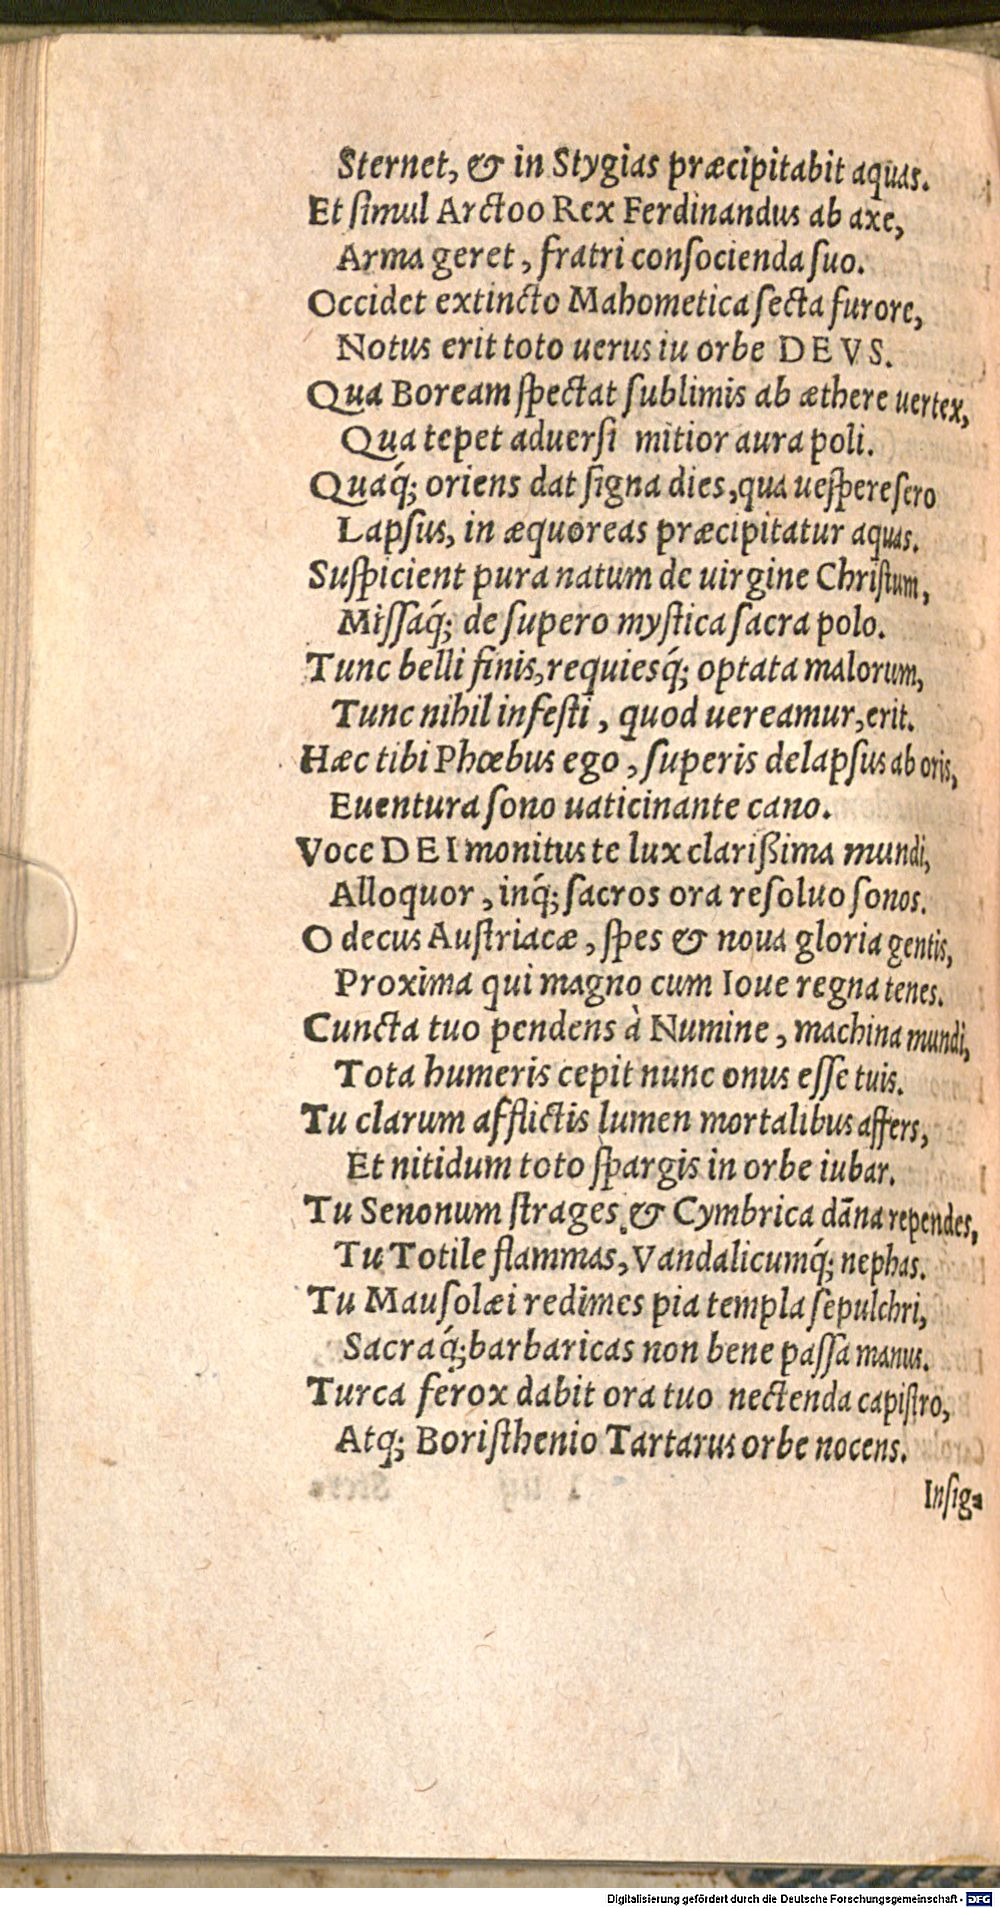 Sternet, & in Stygias præcipitabit aquas.
Et ſimul Arctoo Rex Ferdinandus ab axe,
Arma geret, fratri conſocienda ſuo.
Occidet extincto Mahometica ſecta furore,
Notus erit toto uerus iu orbe DEVS.
Qua Boream ſpectat ſublimis ab æthere uertex,
Qua tepet aduerſi mitior aura poli.
Quaq́; oriens dat ſigna dies, qua ueſpere ſero
Lapſus, in æquoreas præcipitatur aquas.
Suſpicient pura natum de uirgine Chriſtum,
Miſſaq́; de ſupero myſtica ſacra polo.
Tunc belli finis, requiesq́; optata malorum,
Tunc nihil infeſti, quod uereamur, erit.
Hæc tibi Phœbus ego, ſuperis delapſus ab oris,
Euentura ſono uaticinante cano.
Voce DEI monitus te lux clarißima mundi,
Alloquor, inq́; ſacros ora reſoluo ſonos.
O decus Auſtriacæ, ſpes & noua gloria gentis,
Proxima qui magno cum Ioue regna tenes.
Cuncta tuo pendens à Numine, machina mundi,
Tota humeris cepit nunc onus eſſe tuis.
Tu clarum afflictis lumen mortalibus affers,
Et nitidum toto ſpargis in orbe iubar.
Tu Senonum ſtrages, & Cymbrica dāna rependes,
Tu Totile flammas, Vandalicumq́; nephas.
Tu Mauſolæi redimes pia templa ſepulchri,
Sacraq́; barbaricas non bene paſſa manus.
Turca ferox dabit ora tuo nectenda capiſtro,
Atq; Boriſthenio Tartarus orbe nocens.
Inſig=
Digitalisierung gefördert durch die Deutsche Forschungsgemeinschaft - DFG